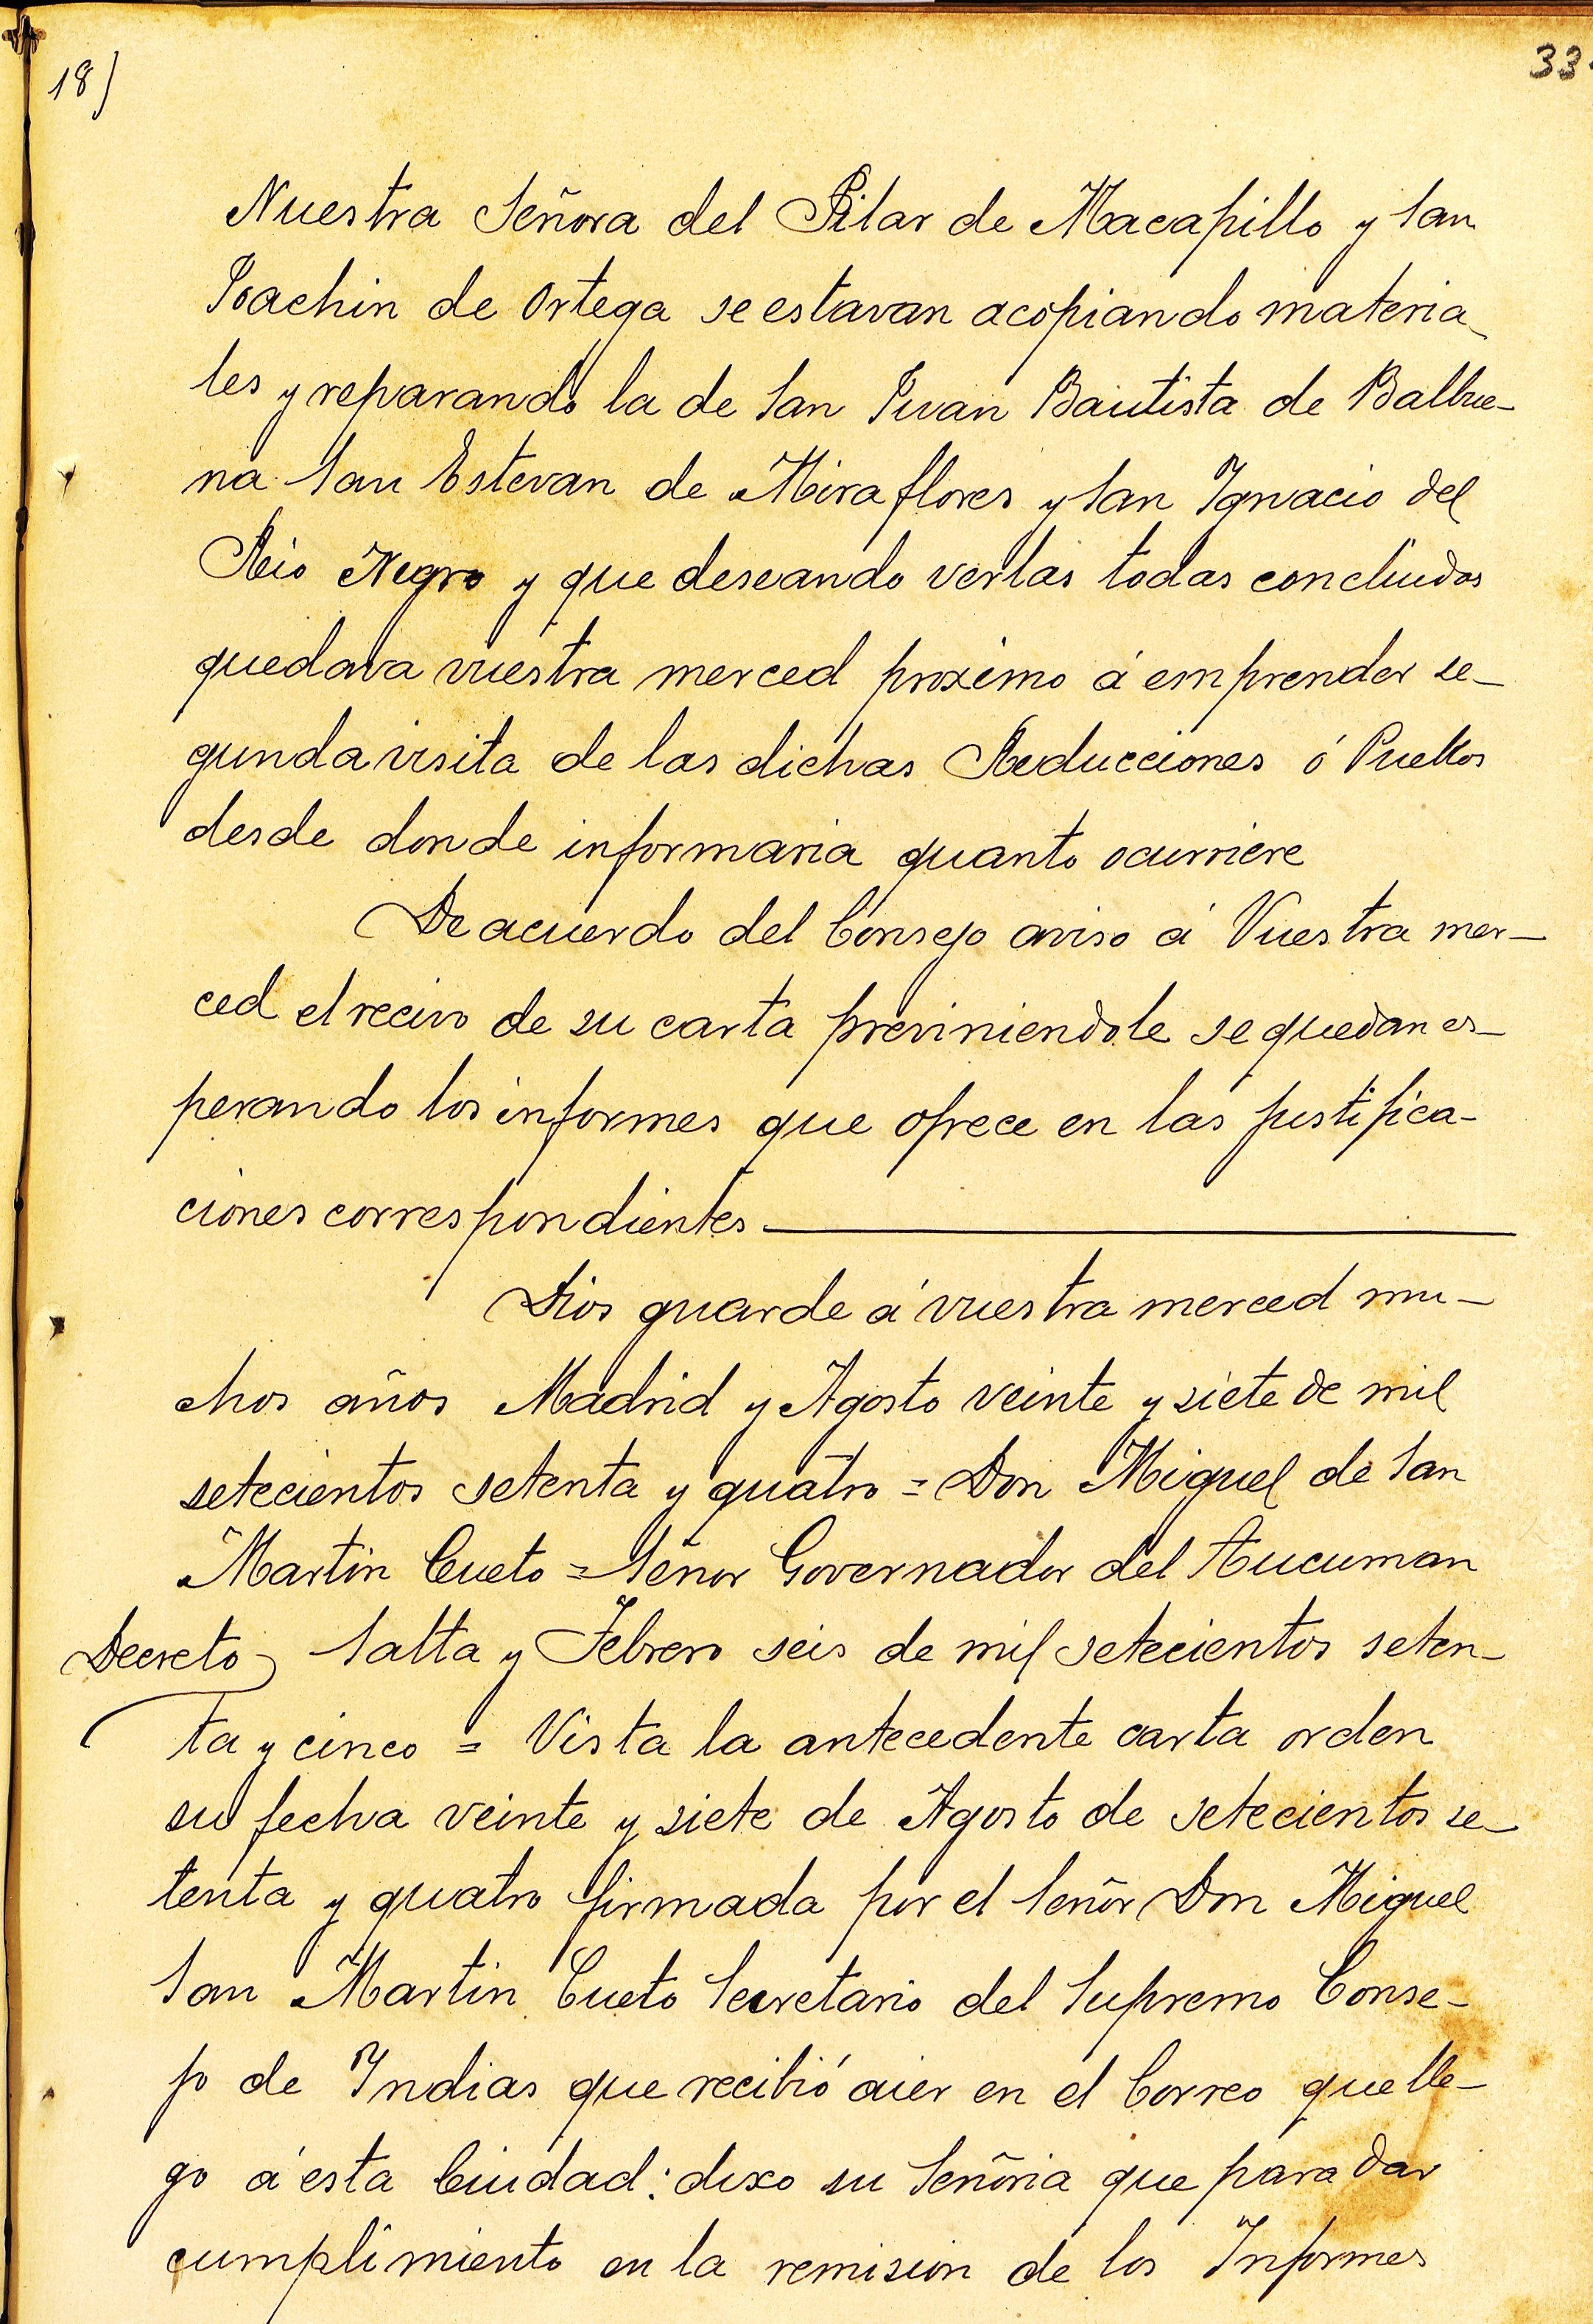 18)
33
Nuestra Señora del Pilar de Macapillo y San
Joachin de Ortega se estavan acopiando materia_
les y reparando la de San Juan Bautista de Balbue_
na San Estevan de Miraflores y San Ignacio del
Rio Negro y que deseando verlas todas concluidas
quedava vuestra merced proximo á emprender se_
gunda visita de las dichas Reducciones ó Pueblos
desde donde informaria quanto ocurriere
De acuerdo del Consejo aviso á Vuestra mer_
ced el recivo de su carta previniendole se quedan es_
perando los informes que ofrece en las justifica-
ciones correspondientes
Dios guarde á vuestra merced mu_
chos años Madrid y Agosto veinte y siete de mil
setecientos setenta y quatro = Don Miguel de San
Martin Cueto = Señor Governador del Tucuman
Decreto Salta y Febrero seis de mil setecientos seten_
ta y cinco = Vista la antecedente carta orden
su fecha veinte y siete de Agosto de setecientos se_
tenta y quatro firmada por el Señor Don Miguel
San Martin Cueto Secretario del Supremo Conse_
jo de Indias que recibió aier en el Correo que lle_
go á esta Ciudad: dixo su Señoria que para dar
cumplimiento en la remision de los Informes